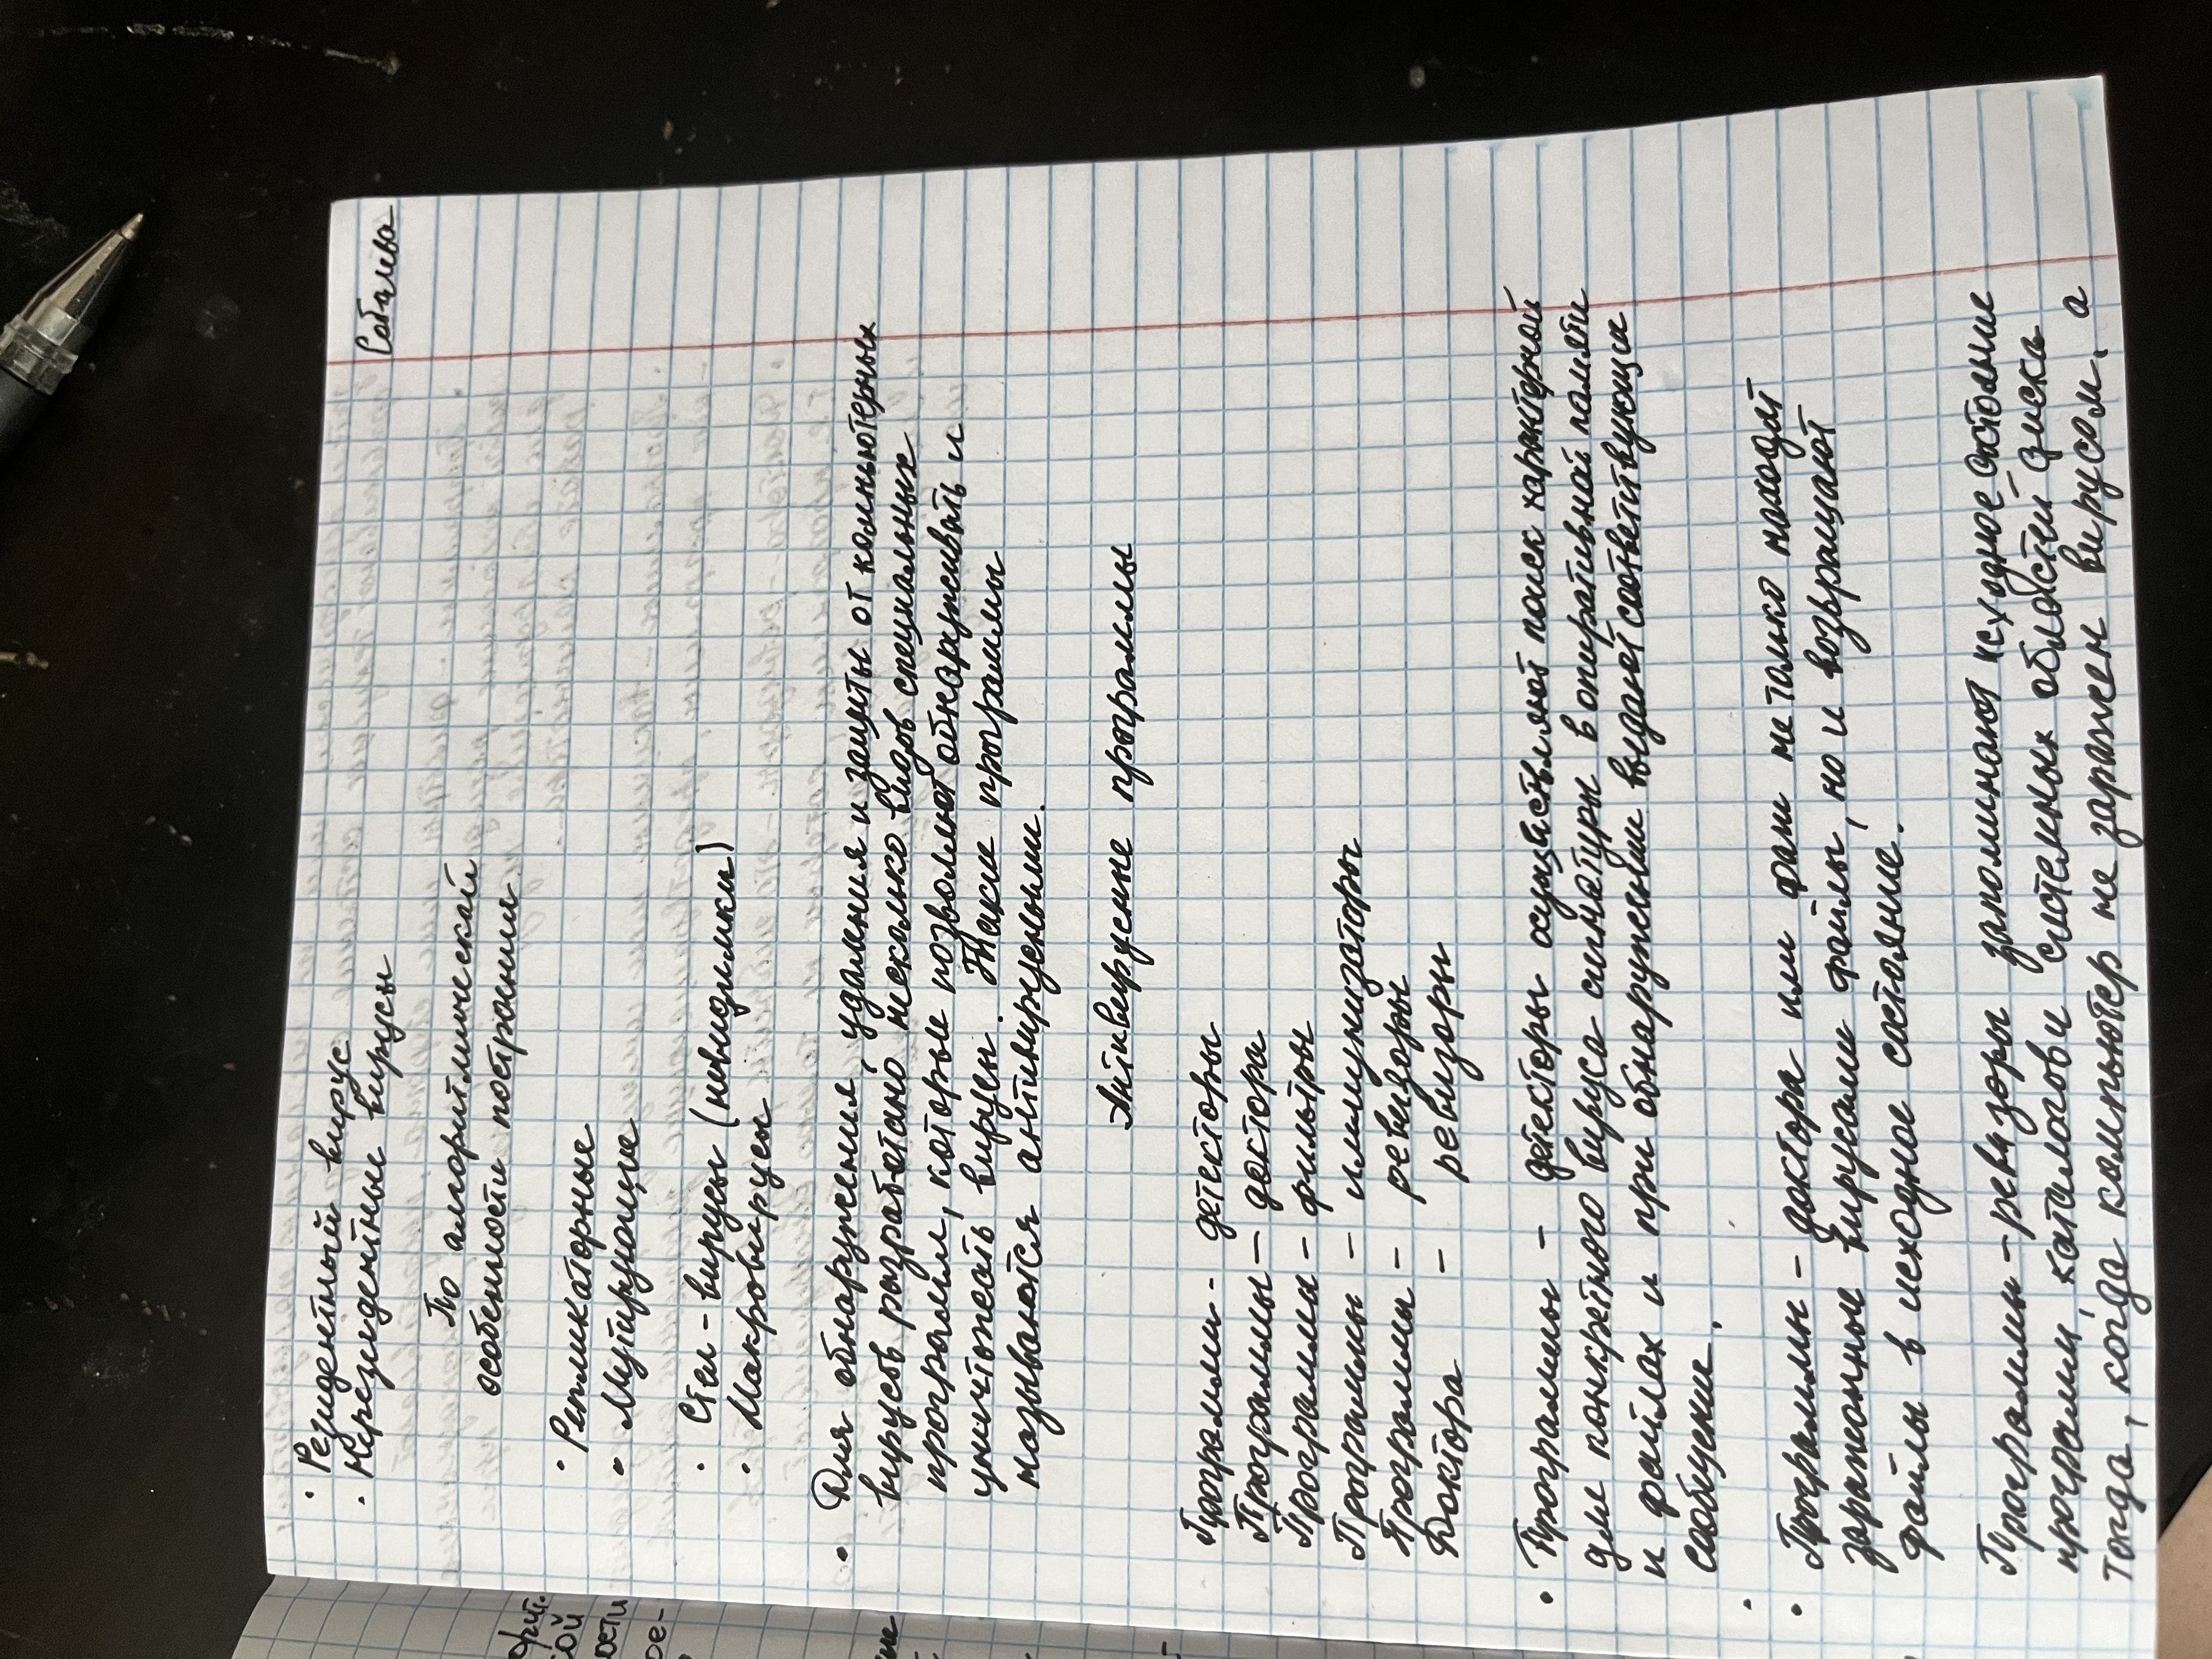 Соболева
• Резидентный вирус
• Нерезидентные вирусы
По алгоритмической
особенности построения
• Репликаторные
• Мутирующие
• Стел-вирусы (невидимки)
• Макровирусы
• Для обнаружения, удаления и защиты от компьютерных
вирусов разработано несколько видов специальных
программ, которые позволяют обнаруживать и
уничтожать вирусы. Такие программы
называются антивирусными.
Антивирусные программы
Программы - детекторы
Программы — доктора
Программы - фильтры
Программы - иммунизаторы
Программы - ревизоры
Доктора - ревизоры
• Программы - детекторы осуществляют поиск характерной
для конкретного вируса сигнатуры в оперативной памяти
и файлах и при обнаружении выдают соответствующие
сообщения.
•
• Программы - доктора или фаги не только находят
зараженные вирусами файлы, но и возвращают
файлы в исходное состояние.
Программы - ревизоры запоминают исходное состояние
программ, каталогов и системных областей диска
тогда, когда компьютер не заражен вирусом, а
сой
ости
ое-